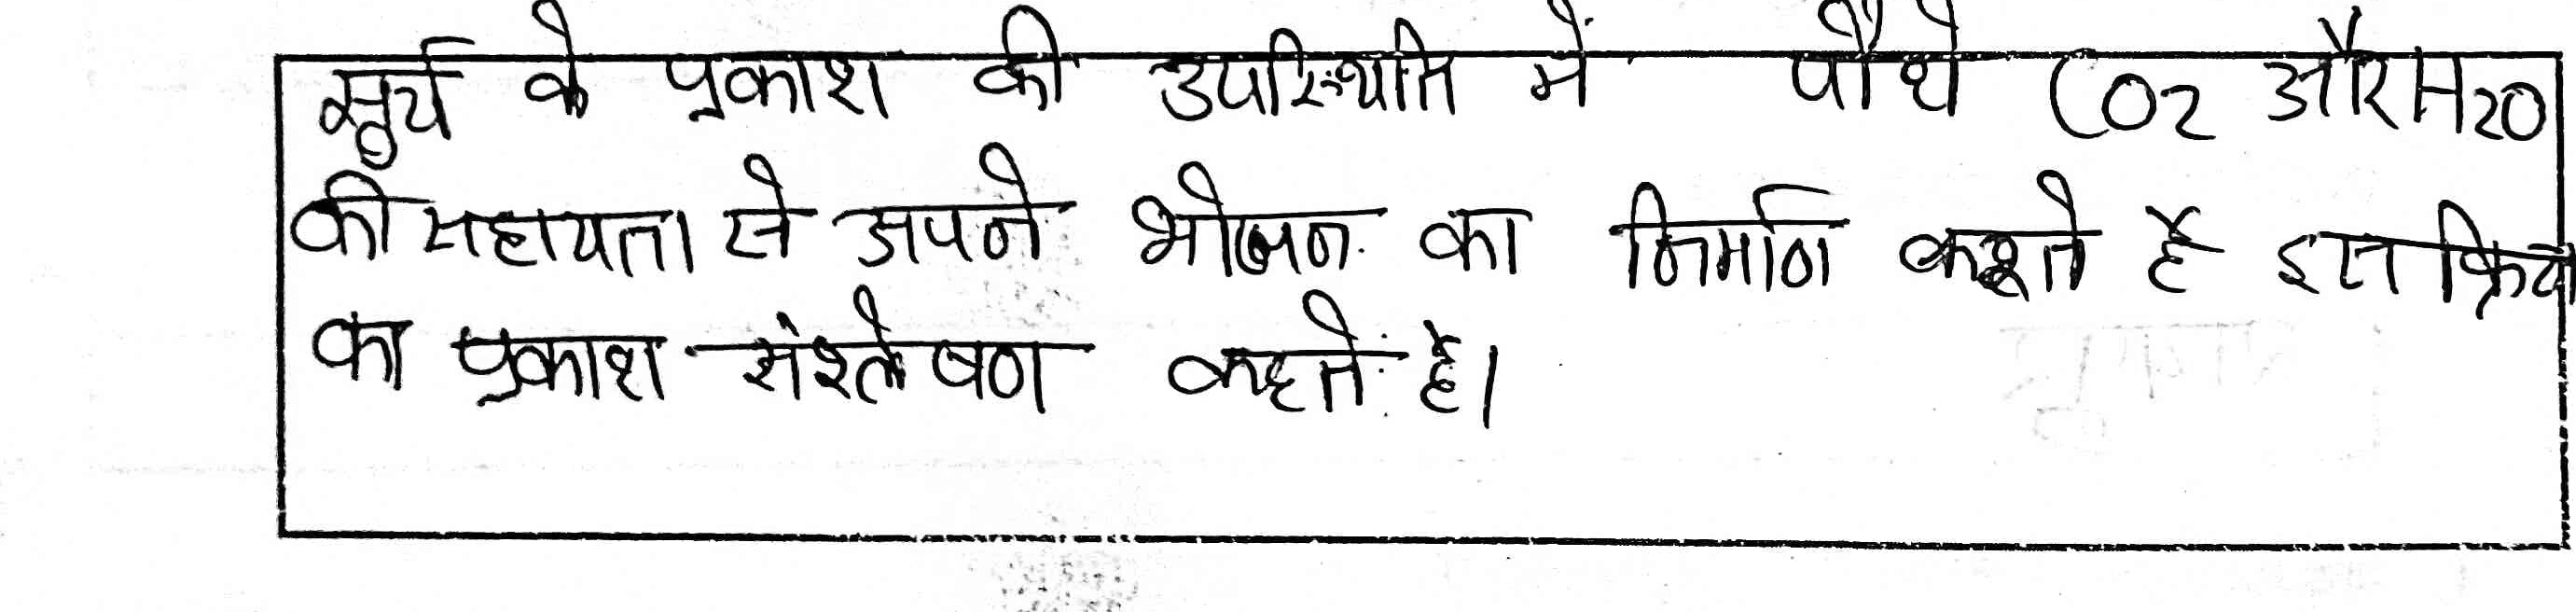 सूर्य के प्रकाश की उपस्थिति में पौधे CO2 और H2O
की सहायता से अपने भोजन का निर्माण करते हैं इस क्रिया
का प्रकाश संश्लेषण कहते है।